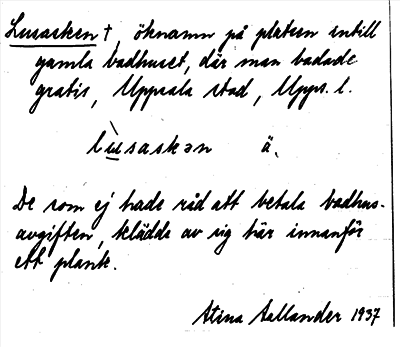 Lusasken †, öknamn på platsen intill
gamla badhuset, där man badade
gratis, Uppsala stad, Upps. l.
lùsaskən ä.
De som ej hade råd att betala badhus-
avgiften, klädde av sig här innanför
ett plank.
Stina Sallander 1937